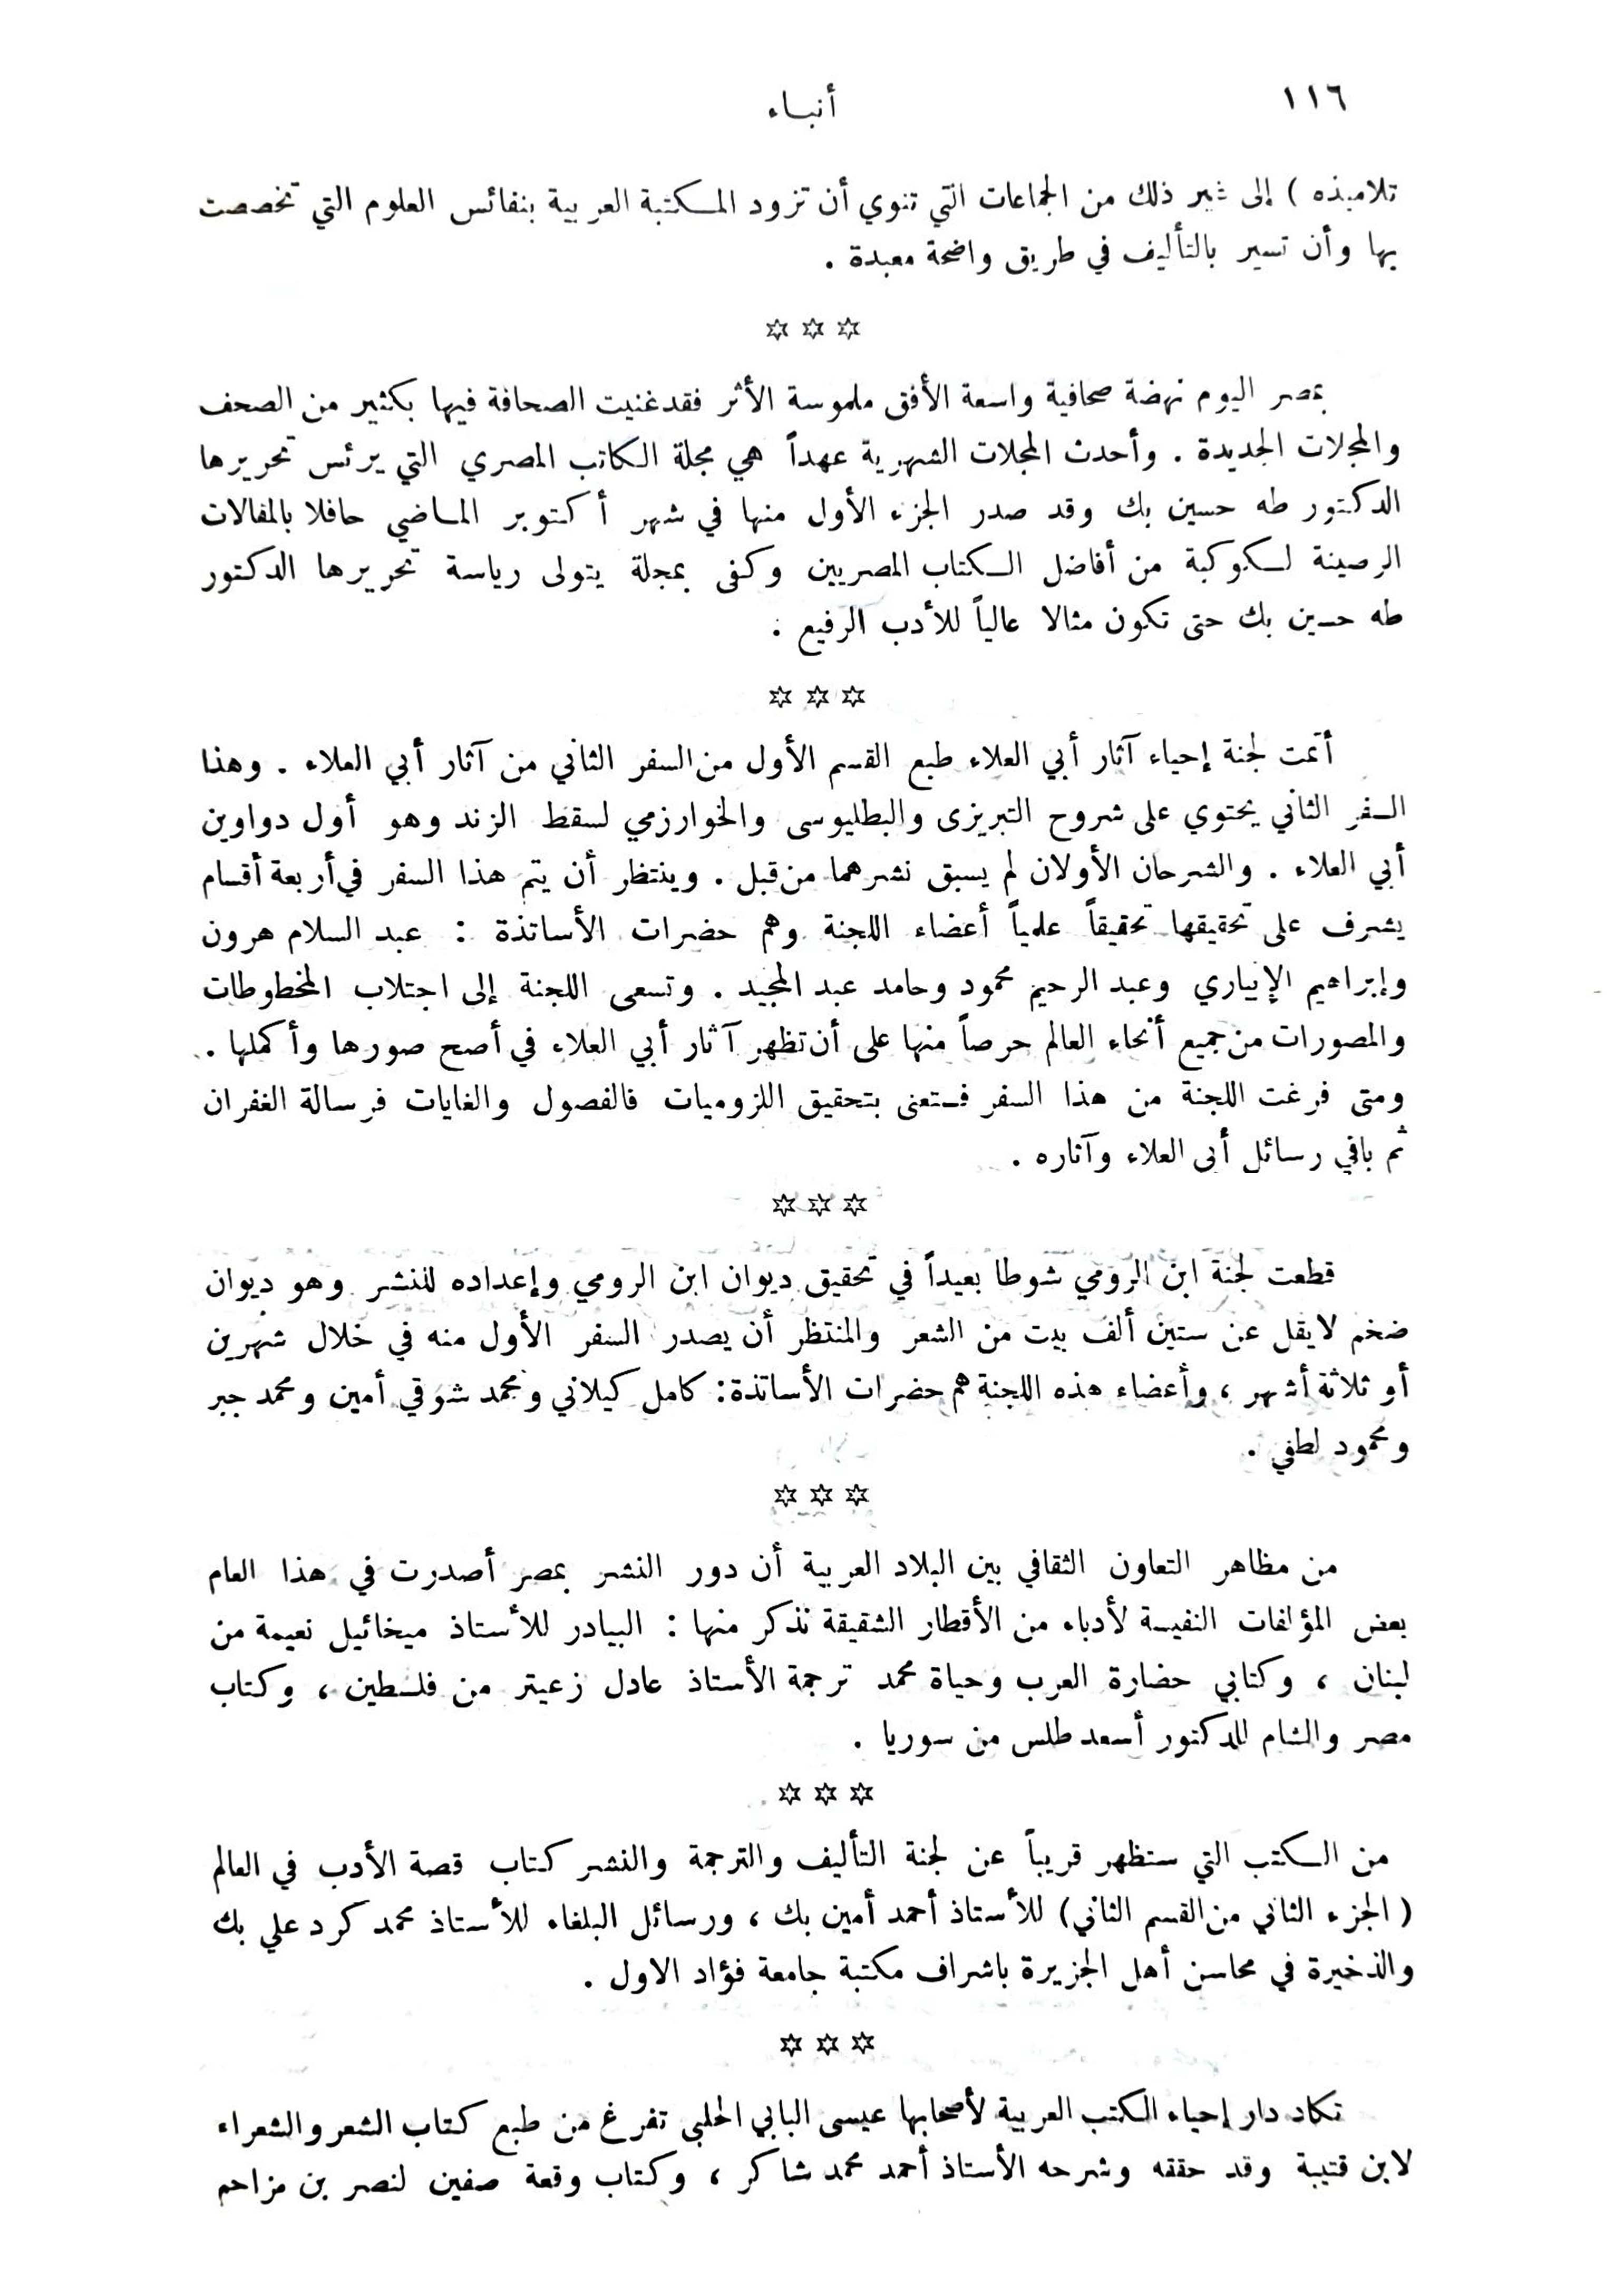 ١١٦
أنباء
تلاميذه ) إلى غير ذلك من الجماعات التي تنوي أن تزود المكتبة العربية بنفائس العلوم التي تخصصت
بها وأن تسير بالتأليف في طريق واضحة معبدة .
☆ ☆ ☆
بمصر اليوم نهضة صحافية واسعة الأفق ملموسة الأثر فقد غنيت الصحافة فيها بكثير من الصحف
والمجلات الجديدة . وأحدث المجلات الشهرية عهداً هي مجلة الكاتب المصري التي يرئس تحريرها
الدكتور طه حسين بك وقد صدر الجزء الأول منها في شهر أكتوبر الماضي حافلا بالمقالات
الرصينة لكوكبة من أفاضل الكتاب المصريين وكفى بمجلة يتولى رياسة تحريرها الدكتور
طه حسين بك حتى تكون مثالا عالياً للأدب الرفيع .
☆ ☆ ☆
أتمت لجنة إحياء آثار أبي العلاء طبع القسم الأول من السفر الثاني من آثار أبي العلاء . وهذا
السفر الثاني يحتوي على شروح التبريزى والبطليوسى والخوارزمي لسقط الزند وهو أول دواوين
أبي العلاء . والشرحان الأولان لم يسبق نشرهما من قبل . وينتظر أن يتم هذا السفر في أربعة أقسام
يشرف على تحقيقها تحقيقاً علمياً أعضاء اللجنة وهم حضرات الأساتذة : عبد السلام هرون
وإبراهيم الإبياري وعبد الرحيم محمود وحامد عبد المجيد . وتسعى اللجنة إلى اجتلاب المخطوطات
والمصورات من جميع أنحاء العالم حرصاً منها على أن تظهر آثار أبي العلاء في أصح صورها وأكملها .
ومتى فرغت اللجنة من هذا السفر فستعنى بتحقيق اللزوميات فالفصول والغايات فرسالة الغفران
ثم باقي رسائل أبى العلاء وآثاره .
☆ ☆ ☆
قطعت لجنة ابن الرومي شوطا بعيداً في تحقيق ديوان ابن الرومي وإعداده للنشر وهو ديوان
ضخم لا يقل عن ستين ألف بيت من الشعر والمنتظر أن يصدر السفر الأول منه في خلال شهرين
أو ثلاثة أشهر ، وأعضاء هذه اللجنة هم حضرات الأساتذة : كامل كيلاني ومحمد شوقي أمين ومحمد جبر
ومحمود لطفي .
☆ ☆ ☆
من مظاهر التعاون الثقافي بين البلاد العربية أن دور النشر بمصر أصدرت في هذا العام
بعض المؤلفات النفيسة لأدباء من الأقطار الشقيقة نذكر منها : البيادر للأستاذ ميخائيل نعيمة من
لبنان ، وكتابي حضارة العرب وحياة محمد ترجمة الأستاذ عادل زعيتر من فلسطين ، وكتاب
مصر والشام للدكتور أسعد طلس من سوريا .
☆ ☆ ☆
من الكتب التي ستظهر قريباً عن لجنة التأليف والترجمة والنشر كتاب قصة الأدب في العالم
( الجزء الثاني من القسم الثاني ) للأستاذ أحمد أمين بك ، ورسائل البلغاء للأستاذ محمد كرد علي بك
والذخيرة في محاسن أهل الجزيرة باشراف مكتبة جامعة فؤاد الاول .
☆ ☆ ☆
تكاد دار إحياء الكتب العربية لأصحابها عيسى البابي الحلبي تفرغ من طبع كتاب الشعر والشعراء
لابن قتيبة وقد حققه وشرحه الأستاذ أحمد محمد شاكر ، وكتاب وقعة صفين لنصر بن مزاحم